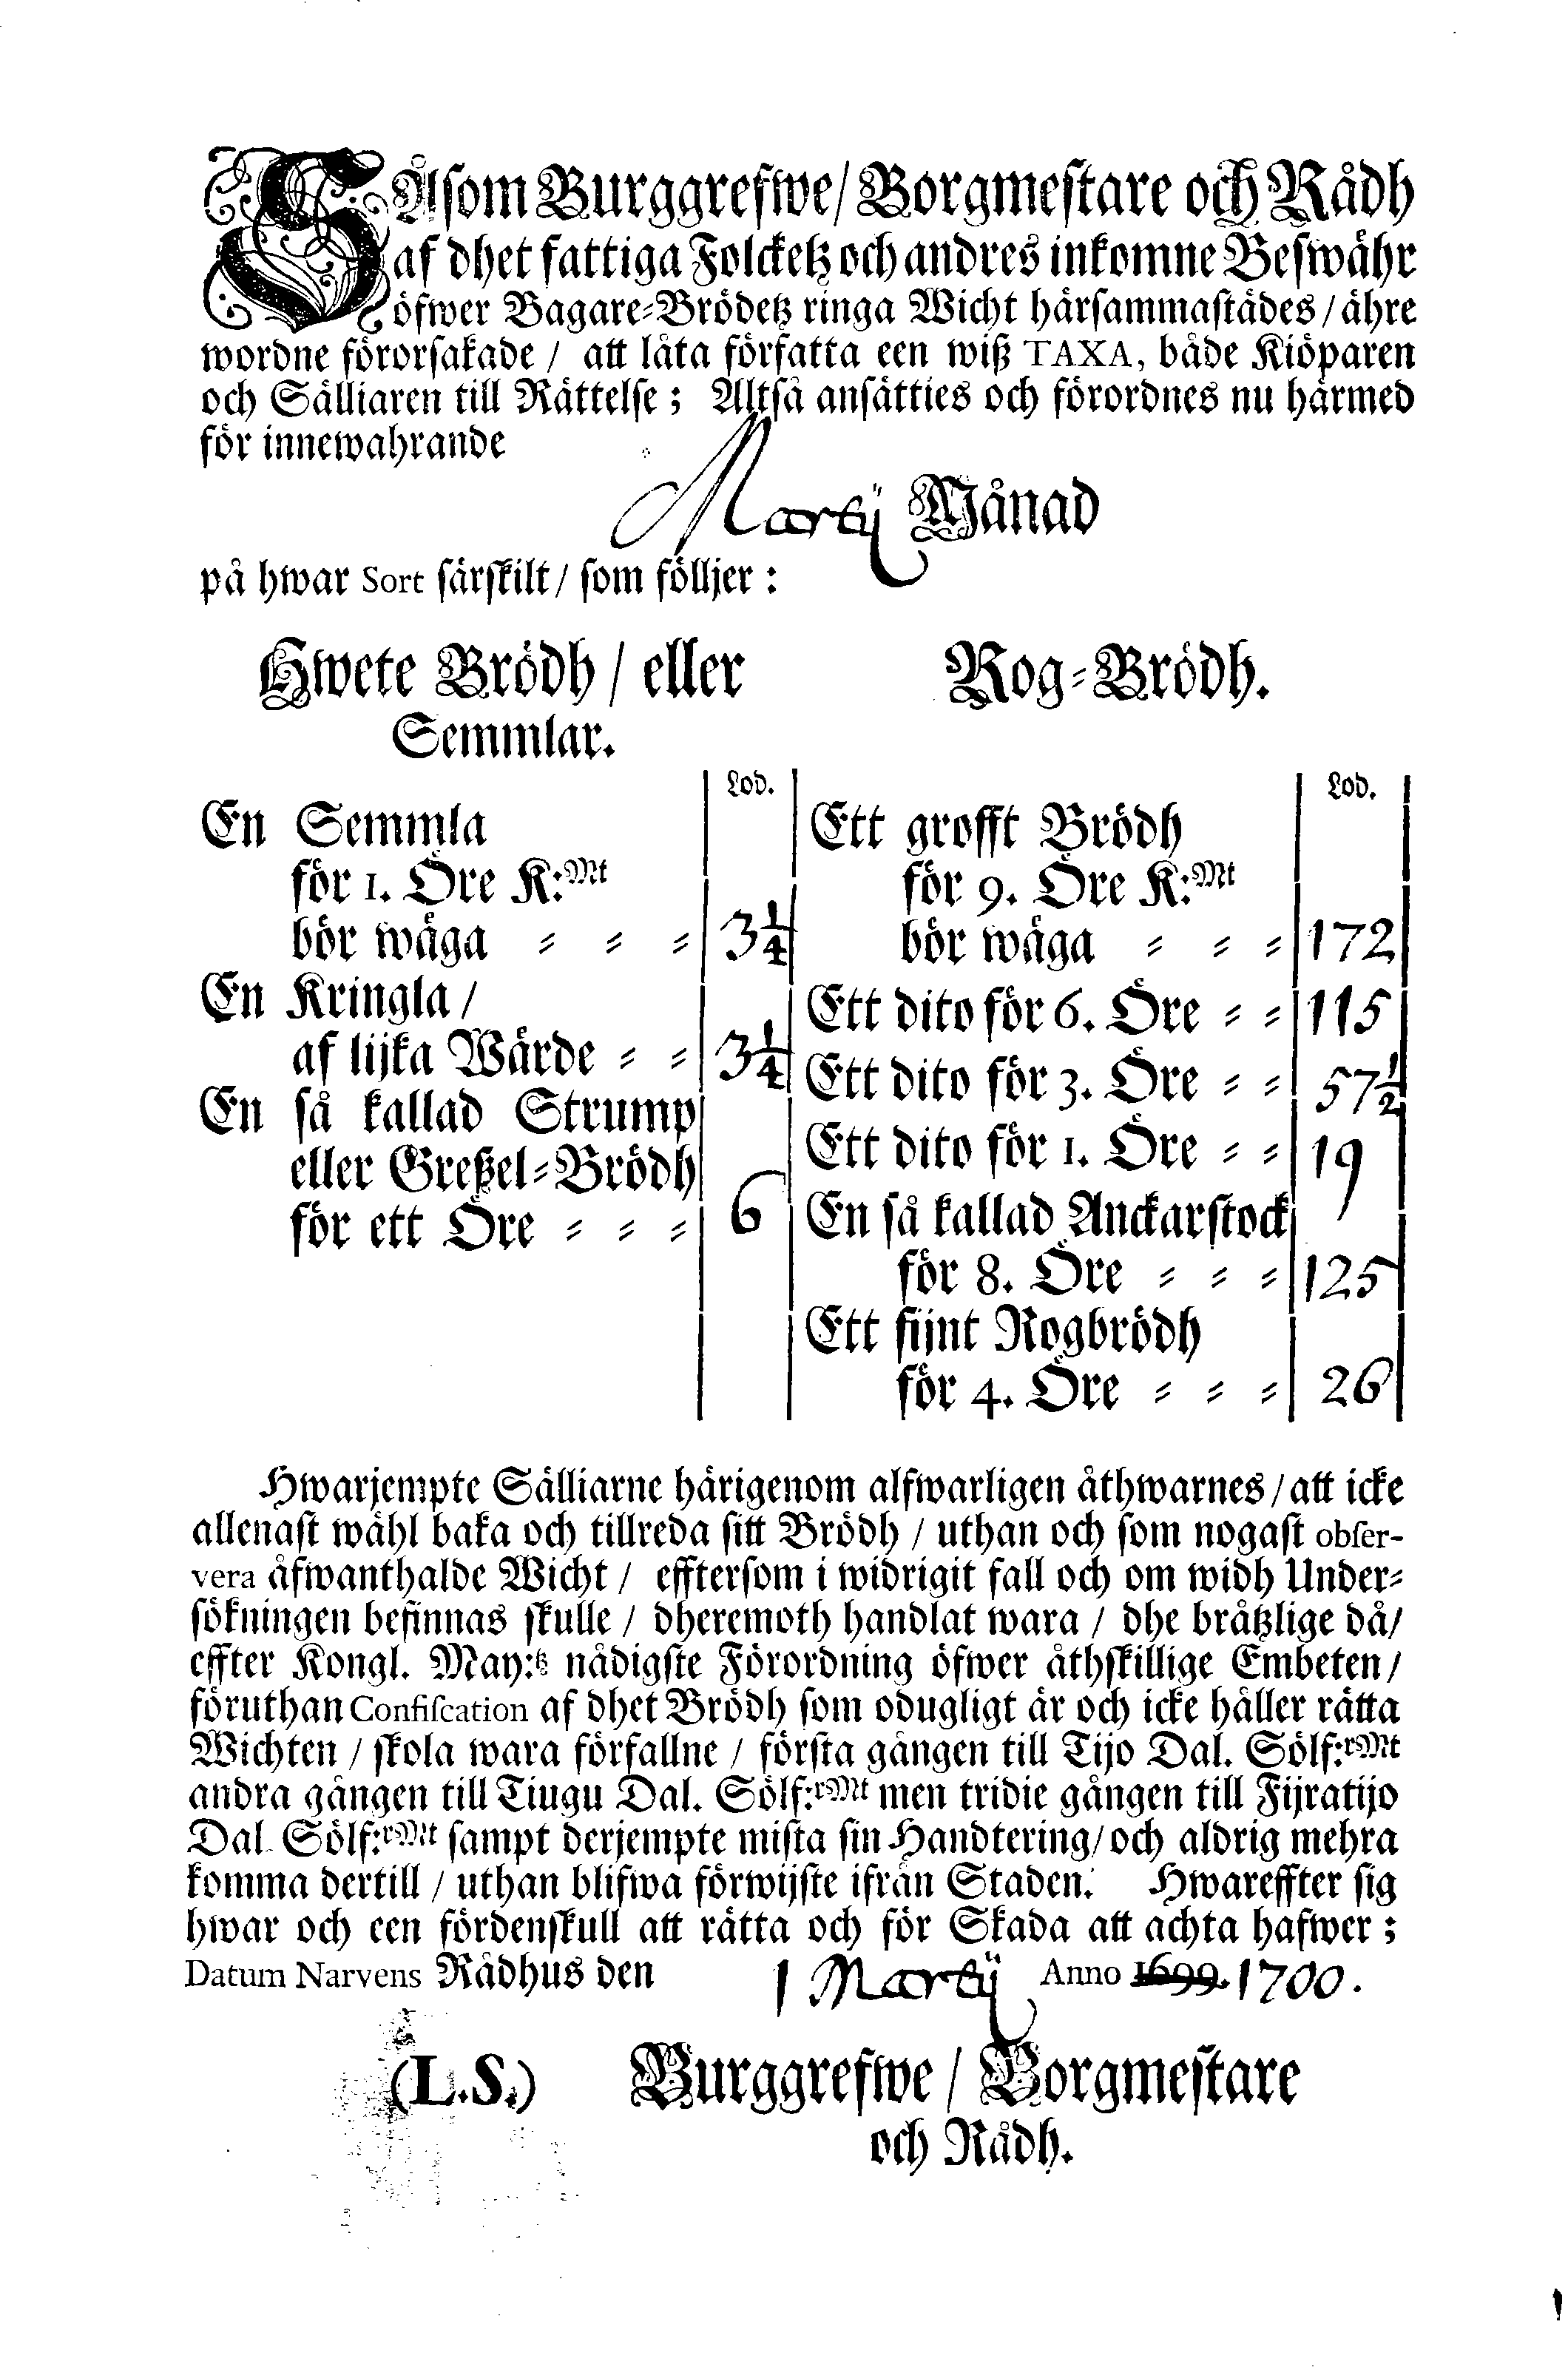 SÅsom Burggrefwe/ Borgmestare och Rådh
af dhet fattiga Folcketz och andres inkomne Beswähr
öfwer Bagare-Brödetz ringa Wicht härsammastädes / ähre
wordne förorsakade / att låta författa een wiß TAXA, både Kiöparen
och Sälliaren till Rättelse; Altså ansätties och förordnes nu härmed
för innewahrande
Martÿ Månad
på hwar Sort särskilt / som fölljer :
Hwete Brödh / eller
Semmlar.
Lod.
En Semmla
för 1. Öre K:Mt
bör wäga = = = 3 1/4
En Kringla /
af lijka Wärde = = 3 1/4
En så kallad Strump
eller Greßel-Brödh
för ett Öre = = = 6
Rog-Brödh.
Lod.
Ett grofft Brödh
för 9. Öre K:Mt
bör wäga = = = 172
Ett dito för 6. Öre = = 115
Ett dito för 3. Öre = = 57 1/2
Ett dito för 1. Öre = = 19
En så kallad Anckarstock
för 8. Öre = = = 125
Ett fijnt Rogbrödh
för 4. Öre = = = 26
Hwarjempte Sälliarne härigenom alfwarligen åthwarnes / att icke
allenast wähl baka och tillreda sitt Brödh / uthan och som nogast obser-
vera åfwanthalde Wicht / efftersom i widrigit fall och om widh Under-
sökningen befinnas skulle / dheremoth handlat wara / dhe bråtzlige då/
effter Kongl. May:tz nådigste Förordning öfwer åthskillige Embeten /
föruthan Confiscation af dhet Brödh som odugligt är och icke håller rätta
Wichten / skola wara förfallne / första gången till Tijo Dal. Sölf:rMt
andra gången till Tiugu Dal. Sölf:rMt men tridie gången till Fijratijo
Dal Sölf:rMt sampt derjempte mista sin Handtering/ och aldrig mehra
komma dertill / uthan blifwa förwijste ifrån Staden. Hwareffter sig
hwar och een fördenskull att rätta och för Skada att achta hafwer;
Datum Narvens Rådhus den 1 Martÿ Anno 1699. 1700.
(L.S.) Burggrefwe / Borgmestare
och Rådh.